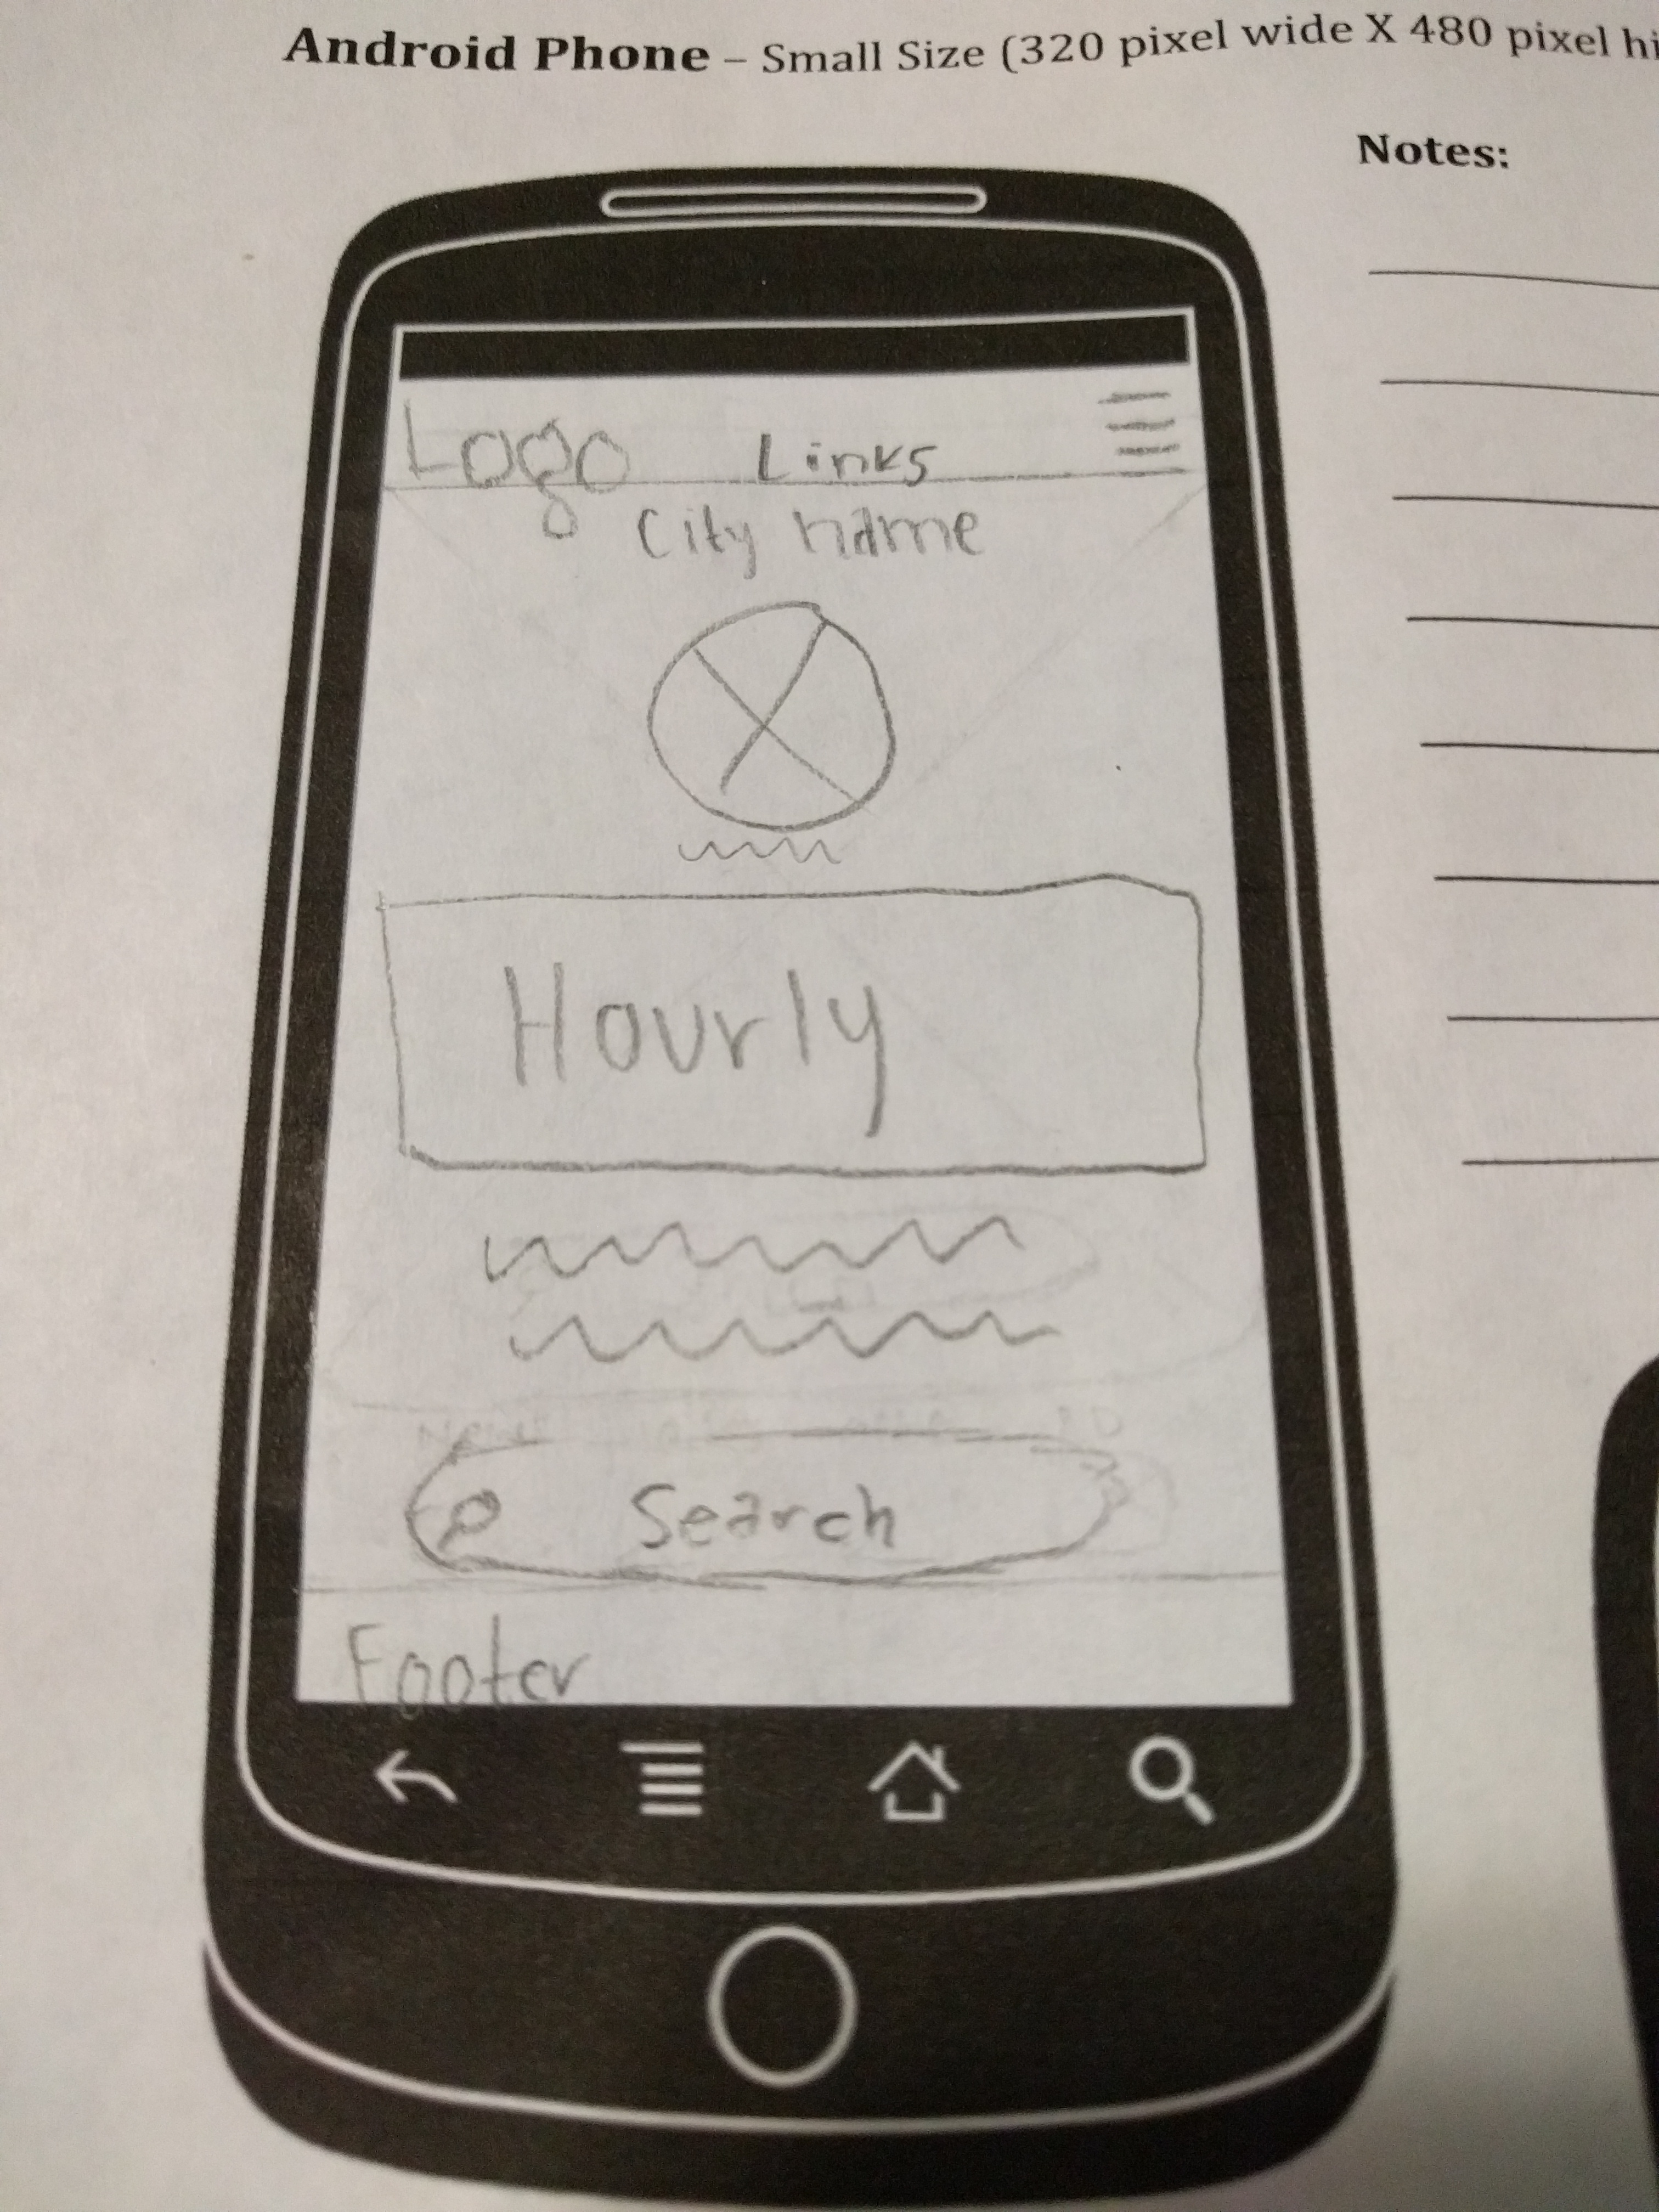 Android Phone – Small Size (320 pixel wide X 480 pixel hi
Notes:
Logo Links
City name
Hourly
Search
Footer